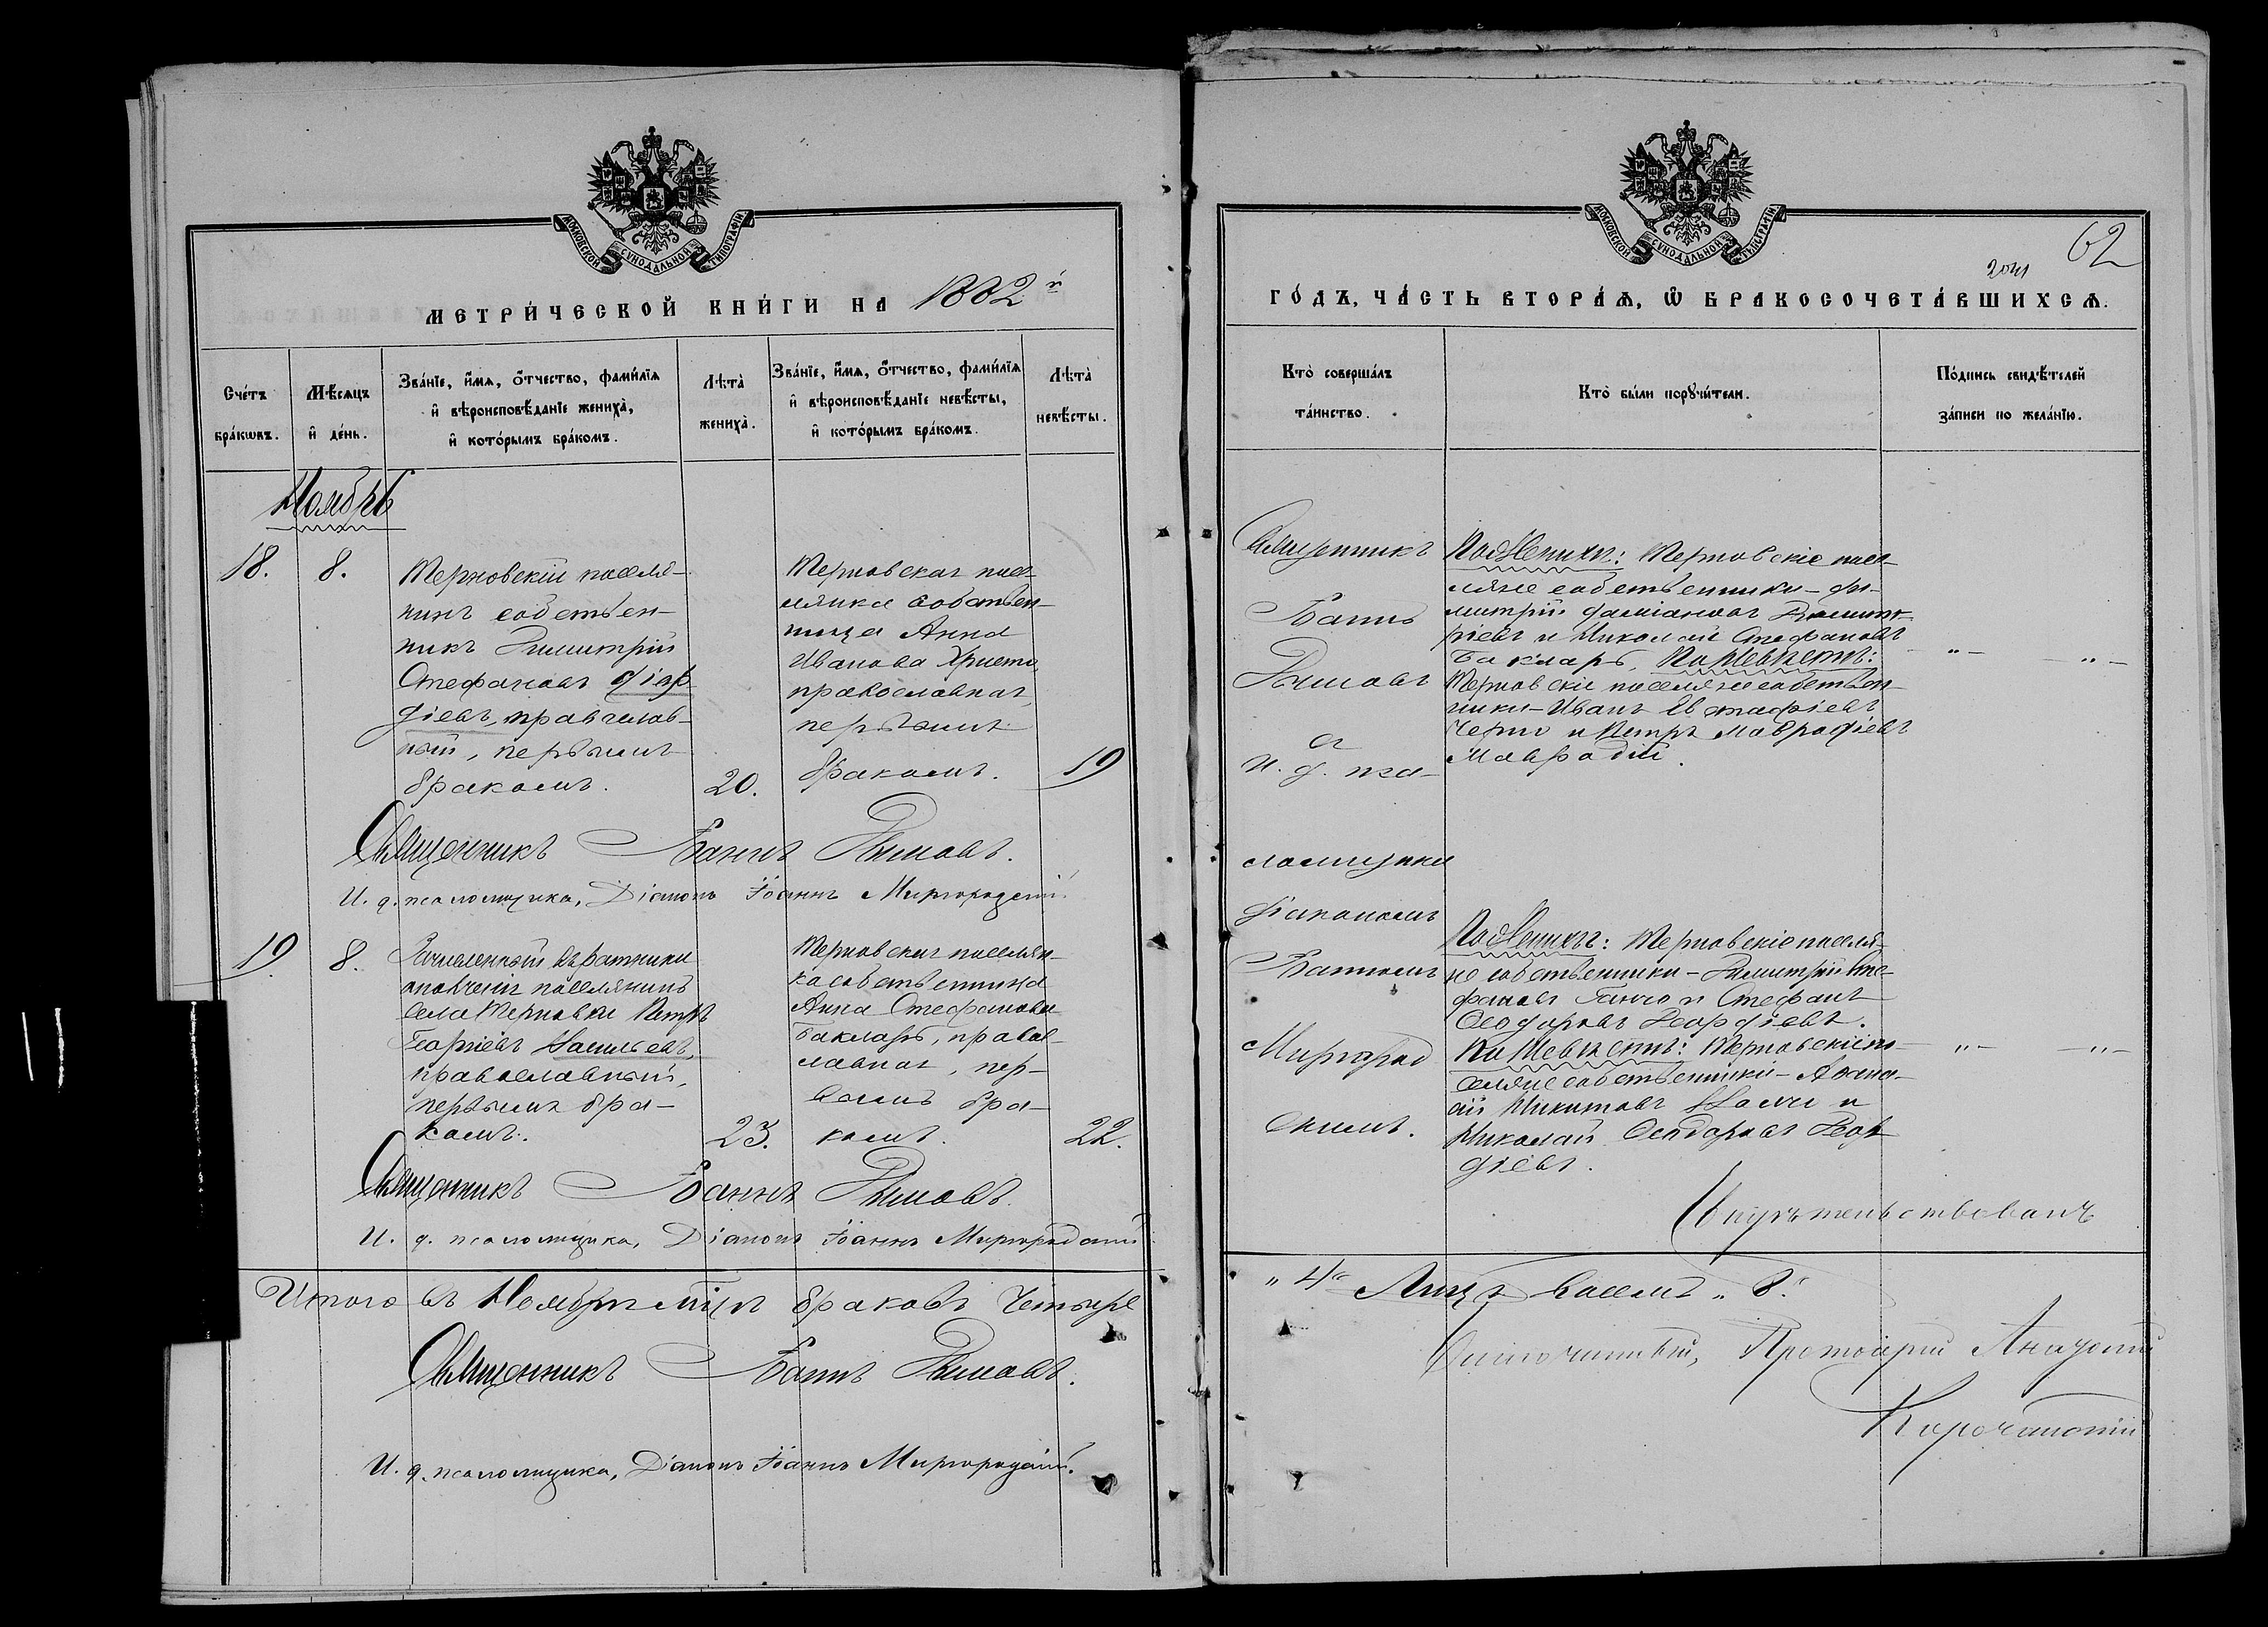 МОСКОВСКОЙ СУНОДАЛЬНОЙ ТИПОГРАФІИ
МЕТРИ́ЧЕСКОЙ КНИ́ГИ НА 1882 й
Сче́тъ бра́кѡвъ.
Мѣ́сѧцъ и҆ де́нь.
Зва́нїе, и҆́мѧ, ѻ҆́тчество, фами́лїѧ и҆ вѣроисповѣ́данїе жениха̀, и҆ кото́рымъ бра́комъ.
Лѣ́та̀ жениха̀.
Зва́нїе, и҆́мѧ, ѻ҆́тчество, фами́лїѧ и҆ вѣроисповѣ́данїе невѣ́сты, и҆ кото́рымъ бра́комъ.
Лѣ́та̀ невѣ́сты.
Ноябрь
18.
8.
Терновскій поселя-
нинъ собствен-
никъ Димитрій
Стефановъ
православ-
ный, первымъ
бракомъ.
20.
Терновская посе-
лянка собствен-
ница Анна
Иванова Христо,
православная,
первымъ
бракомъ.
19
Священникъ Іоаннъ Дымовъ.
И. д. псаломщика, Діаконъ Іоаннъ Миргородскій.
19.
8.
Зачисленный въ ратники
ополченія поселянинъ
села Терновки Петръ
Георгіевъ Васильевъ,
православный,
первымъ бра-
комъ.
23.
Терновская поселян-
ка собственница
Анна Стефанова
Бакларь, право-
славная, пер-
вымъ бра-
комъ.
22.
Священникъ Іоаннъ Дымовъ.
И. д. псаломщика, Діаконъ Іоаннъ Миргородскій
Итого въ Ноябрѣ мѣсяцѣ браковъ четыре
Священникъ Іоаннъ Дымовъ.
И. д. псаломщика, Діаконъ Іоаннъ Миргородскій.
МОСКОВСКОЙ СУНОДАЛЬНОЙ ТИПОГРАФІИ
62
ГО́ДЪ, ЧА́СТЬ ВТОРА́Ѧ, Ѽ БРАКОСОЧЕТА́ВШИХСѦ.
Кто̀ соверша́лъ та́инство.
Кто̀ бы́ли порꙋчи́тели.
По́дпись свидѣ́телей за́писи по жела́нїю.
Священникъ
Іоаннъ
Дымовъ
съ
и. д. пса-
ломщика
діакономъ
Іоанномъ
Миргород
скимъ.
По Женихѣ: Терновскіе посе-
ляне собственники - Ди-
митрій Даміановъ Димит-
ріевъ и Николай Стефановъ
Бакларь. По Невѣстѣ:
Терновскіе поселяне собствен-
ники - Иванъ Евстафіевъ
Черно и Петръ Мавродіевъ
Мавродій.
" - " -
По Женихѣ: Терновскіе поселя-
не собственники - Димитрій Сте-
фановъ Ганчо и Стефанъ
Ѳеодоровъ Георгіевъ.
По Невѣстѣ: Терновскіе по-
селяне собственники - Аѳана-
сій Никитовъ и
Николай Ѳеодоровъ Геор
гіевъ.
" - " -
" 4" Лицъ восемь " 8."
Благочинный, Протоіерей